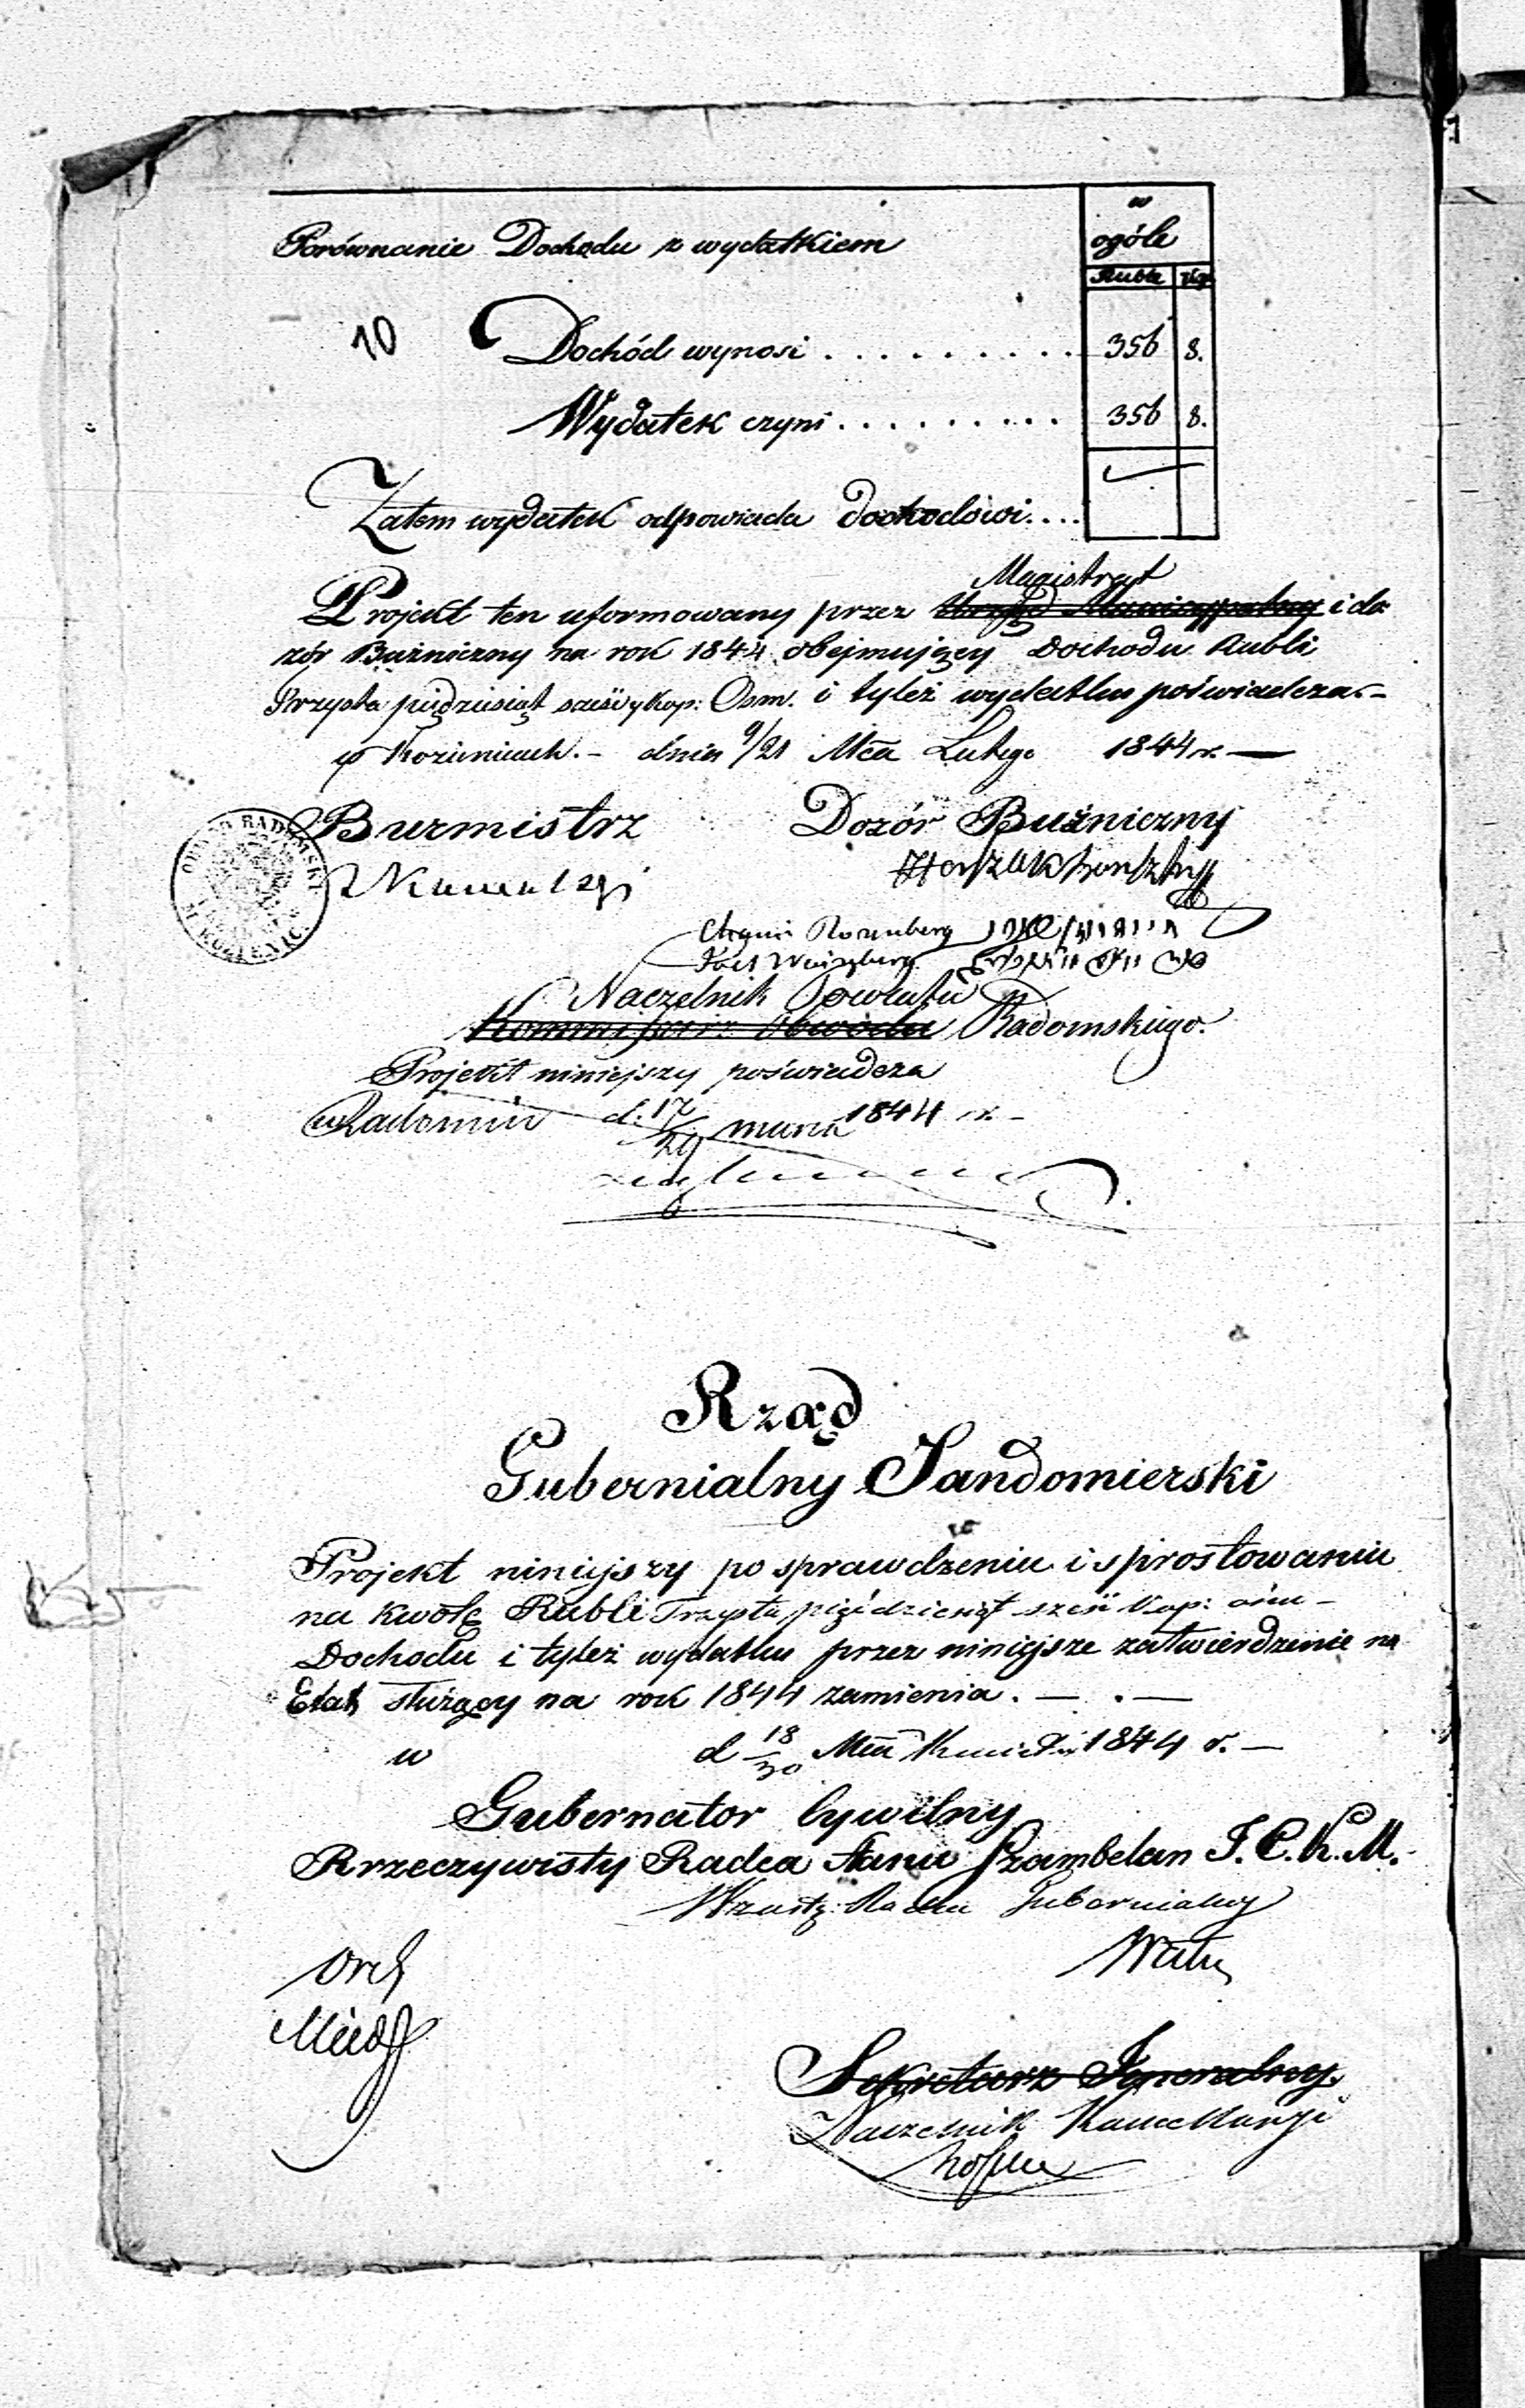 w
Porównanie Dochodu z wydatkiem ogóle
Ruble
10 Dochód wynosi . . . . . . . . . 356 8.
Wydatek czyni . . . . . . . . . 356 8.
Zatem wydatek odpowiada dochodowi....
Magistrat
Projekt ten uformowany przez Urząd Municypalny i do
zór Bużniczny na rok 1844 obejmujący Dochodu Rubli
Trzysta piędziesiąt sześć y Kop: Osm. i tyleż wydatku poświadcza.-
w Kozienicach.- dnia 9/21 Mca Lutego 1844 r.—
Burmistrz Dozór Bużniczny
OBWÓD RADOMSKI
M. KOZIENIC
Rozenberg
Naczelnik Powiatu
Kommissarz Obwodu Radomskiego.
Projekt niniejszy poświadcza
w Radomiu d. 17/29 marca 1844 r.-
Rząd
Gubernialny Sandomierski
Projekt niniejszy po sprawdzeniu i sprostowaniu
na kwotę Rubli Trzysta pięćdziesiąt sześć Kop: ośm-
Dochodu i tyleż wydatku przez niniejsze zatwierdzenie na
Etat służący na rok 1844 zamienia. — . —
w d 18/30 Mca Kwietnia 1844 r. —
Gubernator Cywilny
Rrzeczywisty Radca Stanu Szambelan J. C. K. M.
W zastę: Radca Gubernialny
Sekretarz Jeneralny.
Naczelnik Kancellaryi